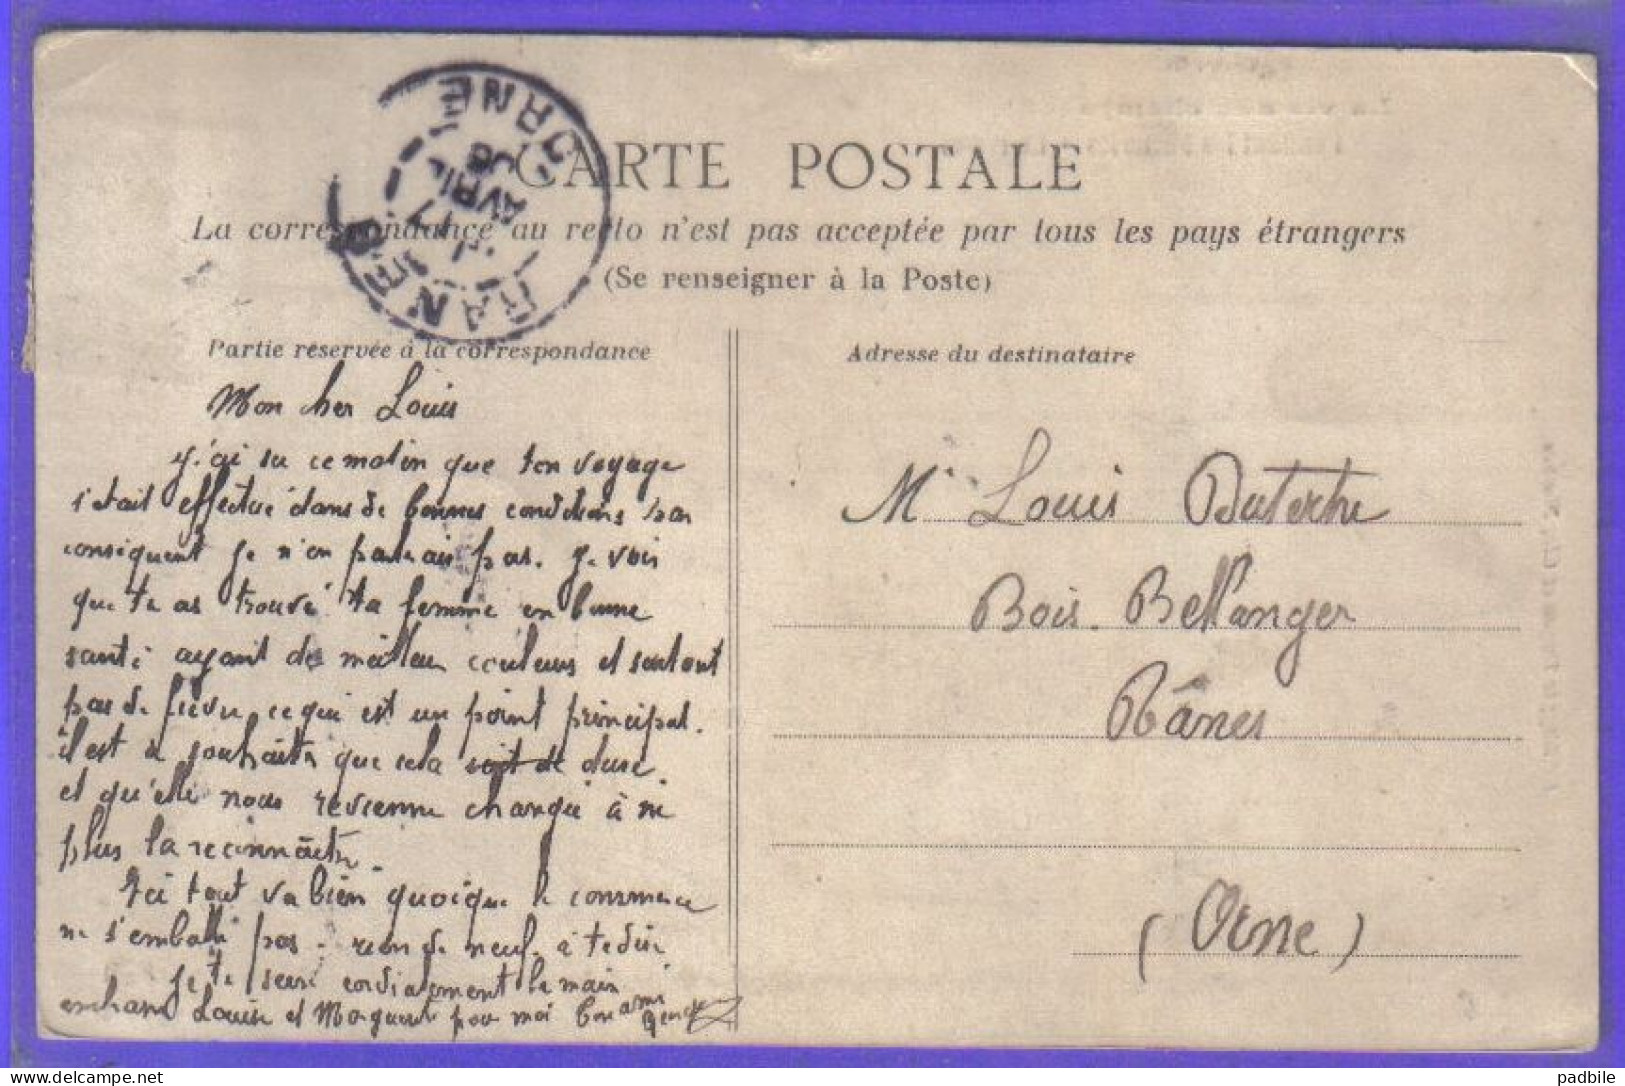 CARTE POSTALE
La correspondance au recto n'est pas acceptée par tous les pays étrangers
(Se renseigner à la Poste)
RANES
ORNE
17
AVRIL
Partie réservée à la correspondance
Mon cher Louis
J'ai su ce matin que ton voyage
s'était effectué dans de bonnes conditions par
conséquent je n'en parlerai pas. Je vois
que tu as trouvé ta femme en bonne
santé ayant de meilleur couleurs et surtout
pas de fièvre, ce qui est un point principal.
il est à souhaiter que cela soit de dure
et qu'elle nous revienne changée à ne
plus la reconnaître.
Ici tout va bien quoique le commerce
ne s'emballe pas. rien de neuf à te dire
Je te serre cordialement la main
embrasse Louise et Marguerite pour moi ton ami
Adresse du destinataire
Mr Louis Duterte
Bois-Bellanger
Rânes
(Orne)
padbile